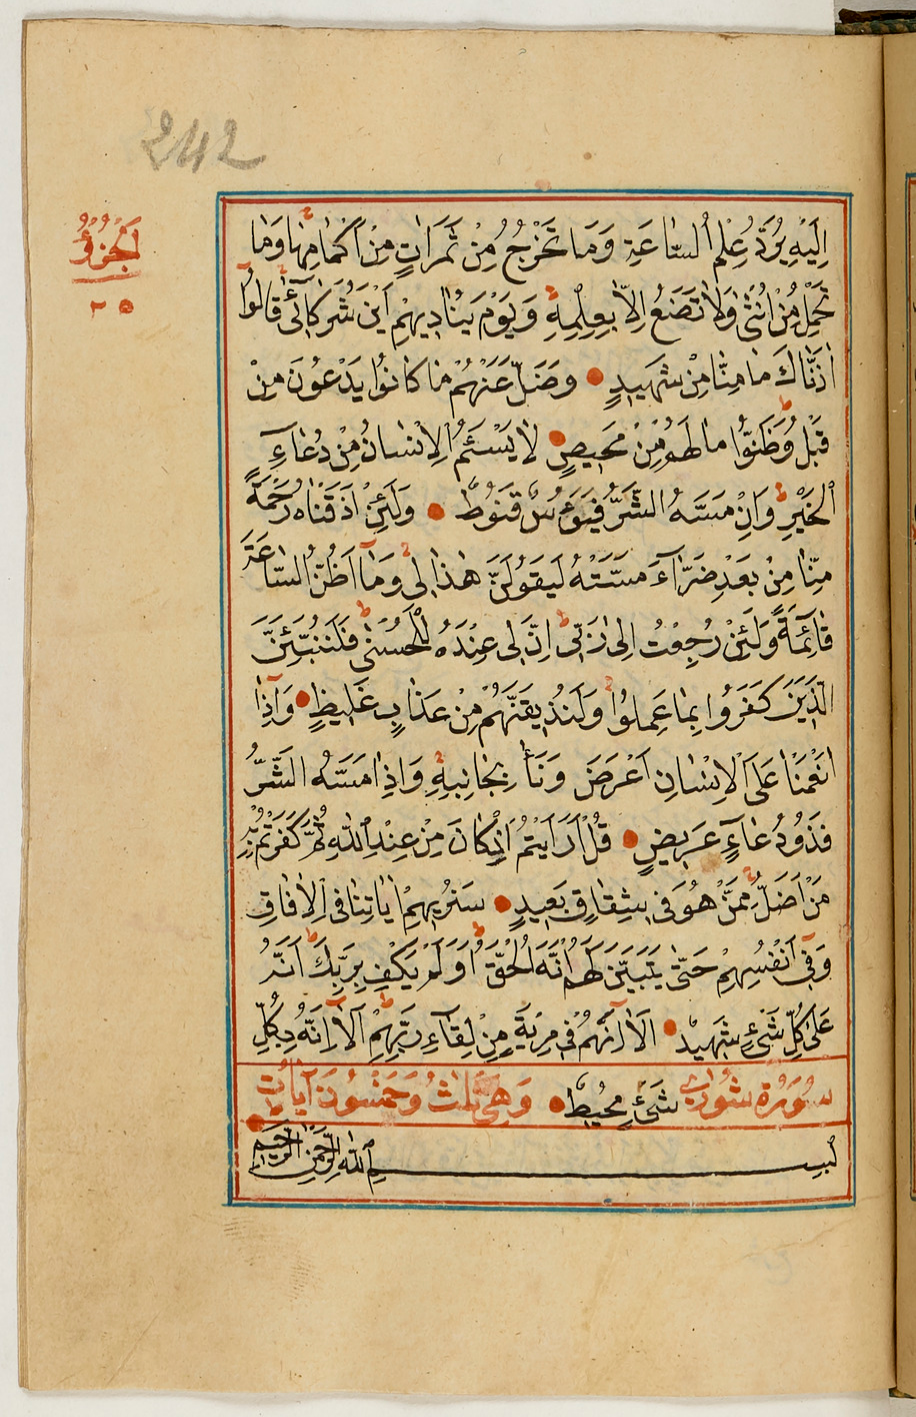 242
اَلْجُزْؤُ
٢٥
اِلَيْهِ يُرَدُّ عِلْمُ السَّاعَةِ وَمَا تَخْرُجُ مِنْ ثَمَرَاتٍ مِنْ اَكْمَامِهَا وَمَا
تَحْمِلُ مِنْ اُنْثٰى وَلَا تَضَعُ اِلَّا بِعِلْمِهِ وَيَوْمَ يُنَادِيهِمْ اَيْنَ شُرَكَائِى قَالُوا
اٰذَنَّاكَ مَا مِنَّا مِنْ شَهِيدٍ وَضَلَّ عَنْهُمْ مَا كَانُوا يَدْعُونَ مِنْ
قَبْلُ وَظَنُّوا مَا لَهُمْ مِنْ مَحِيصٍ لَا يَسْئَمُ الْاِنْسَانُ مِنْ دُعَاءِ
الْخَيْرِ وَاِنْ مَسَّهُ الشَّرُّ فَيَؤُسٌ قَنُوطٌ وَلَئِنْ اَذَقْنَاهُ رَحْمَةً
مِنَّا مِنْ بَعْدِ ضَرَّاءَ مَسَّتْهُ لَيَقُولَنَّ هٰذَا لِى وَمَا اَظُنُّ السَّاعَةَ
قَائِمَةً وَلَئِنْ رُجِعْتُ اِلٰى رَبِّى اِنَّ لِى عِنْدَهُ لَلْحُسْنٰى فَلَنُنَبِّئَنَّ
الَّذِينَ كَفَرُوا بِمَا عَمِلُوا وَلَنُذِيقَنَّهُمْ مِنْ عَذَابٍ غَلِيظٍ وَاِذَا
اَنْعَمْنَا عَلَى الْاِنْسَانِ اَعْرَضَ وَنَأٰ بِجَانِبِهِ وَاِذَا مَسَّهُ الشَّرُّ
فَذُو دُعَاءٍ عَرِيضٍ قُلْ اَرَاَيْتُمْ اِنْ كَانَ مِنْ عِنْدِ اللهِ ثُمَّ كَفَرْتُمْ بِهِ
مَنْ اَضَلُّ مِمَّنْ هُوَ فِى شِقَاقٍ بَعِيدٍ سَنُرِيهِمْ اٰيَاتِنَا فِى الْاٰفَاقِ
وَفِى اَنْفُسِهِمْ حَتّٰى يَتَبَيَّنَ لَهُمْ اَنَّهُ الْحَقُّ اَوَلَمْ يَكْفِ بِرَبِّكَ اَنَّهُ
عَلٰى كُلِّ شَىْءٍ شَهِيدٌ اَلَا اِنَّهُمْ فِى مِرْيَةٍ مِنْ لِقَاءِ رَبِّهِمْ اَلَا اِنَّهُ بِكُلِّ
سُورَةُ شُورٰى شَىْءٍ مُحِيطٌ وَهِىَ ثَلٰثُ وَخَمْسُونَ آيَاتٍ
بِسْمِ اللهِ الرَّحْمٰنِ الرَّحِيمِ